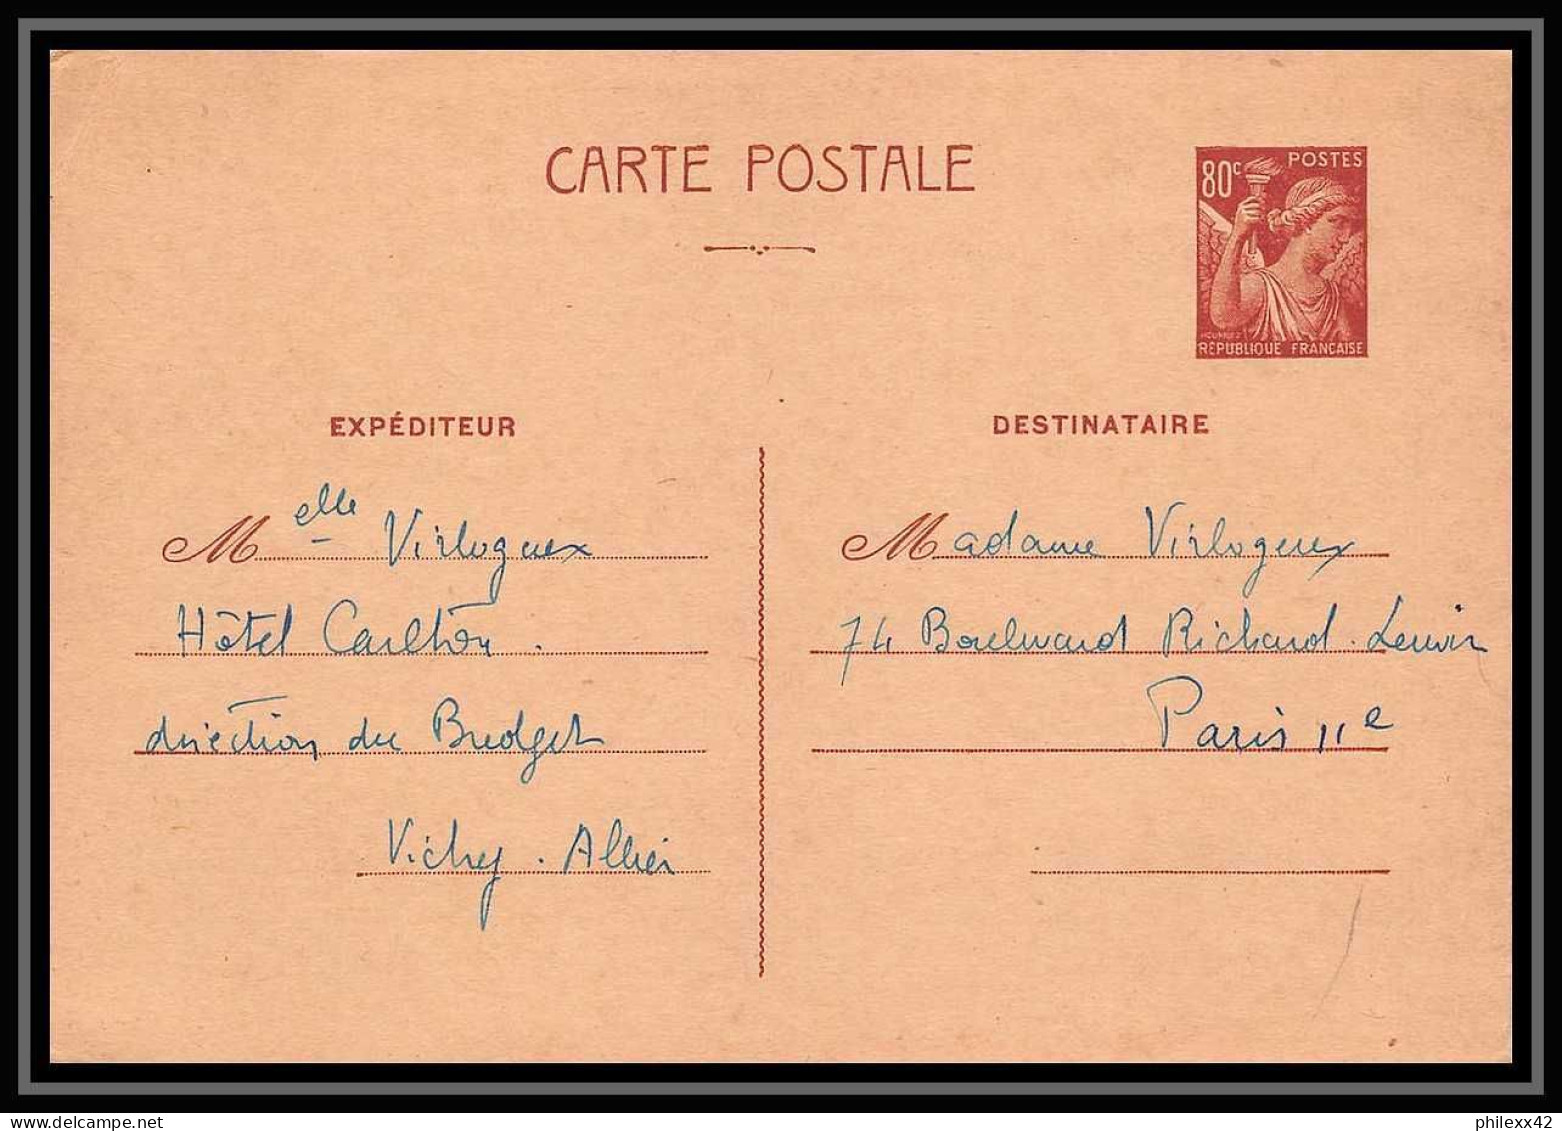 CARTE POSTALE
80c POSTES
RÉPUBLIQUE FRANÇAISE
EXPÉDITEUR
Melle Virlogeux
Hôtel Carlton.
direction du Budget
Vichy. Allier
DESTINATAIRE
Madame Virlogeux
74 Boulevard Richard. Lenoir
Paris 11e
philexx42